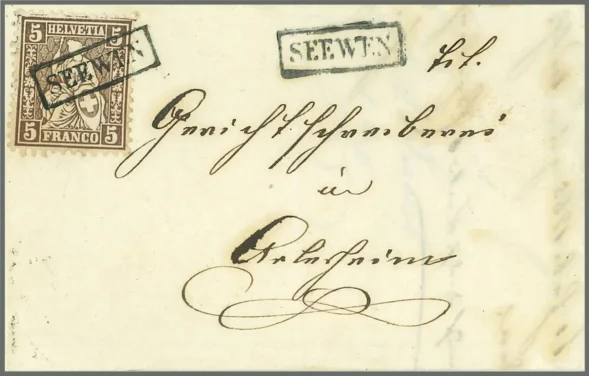 5 HELVETIA 5
SEEWEN
5 FRANCO 5
SEEWEN
Tit.
Gerichtschreiberei
in
Arlesheim